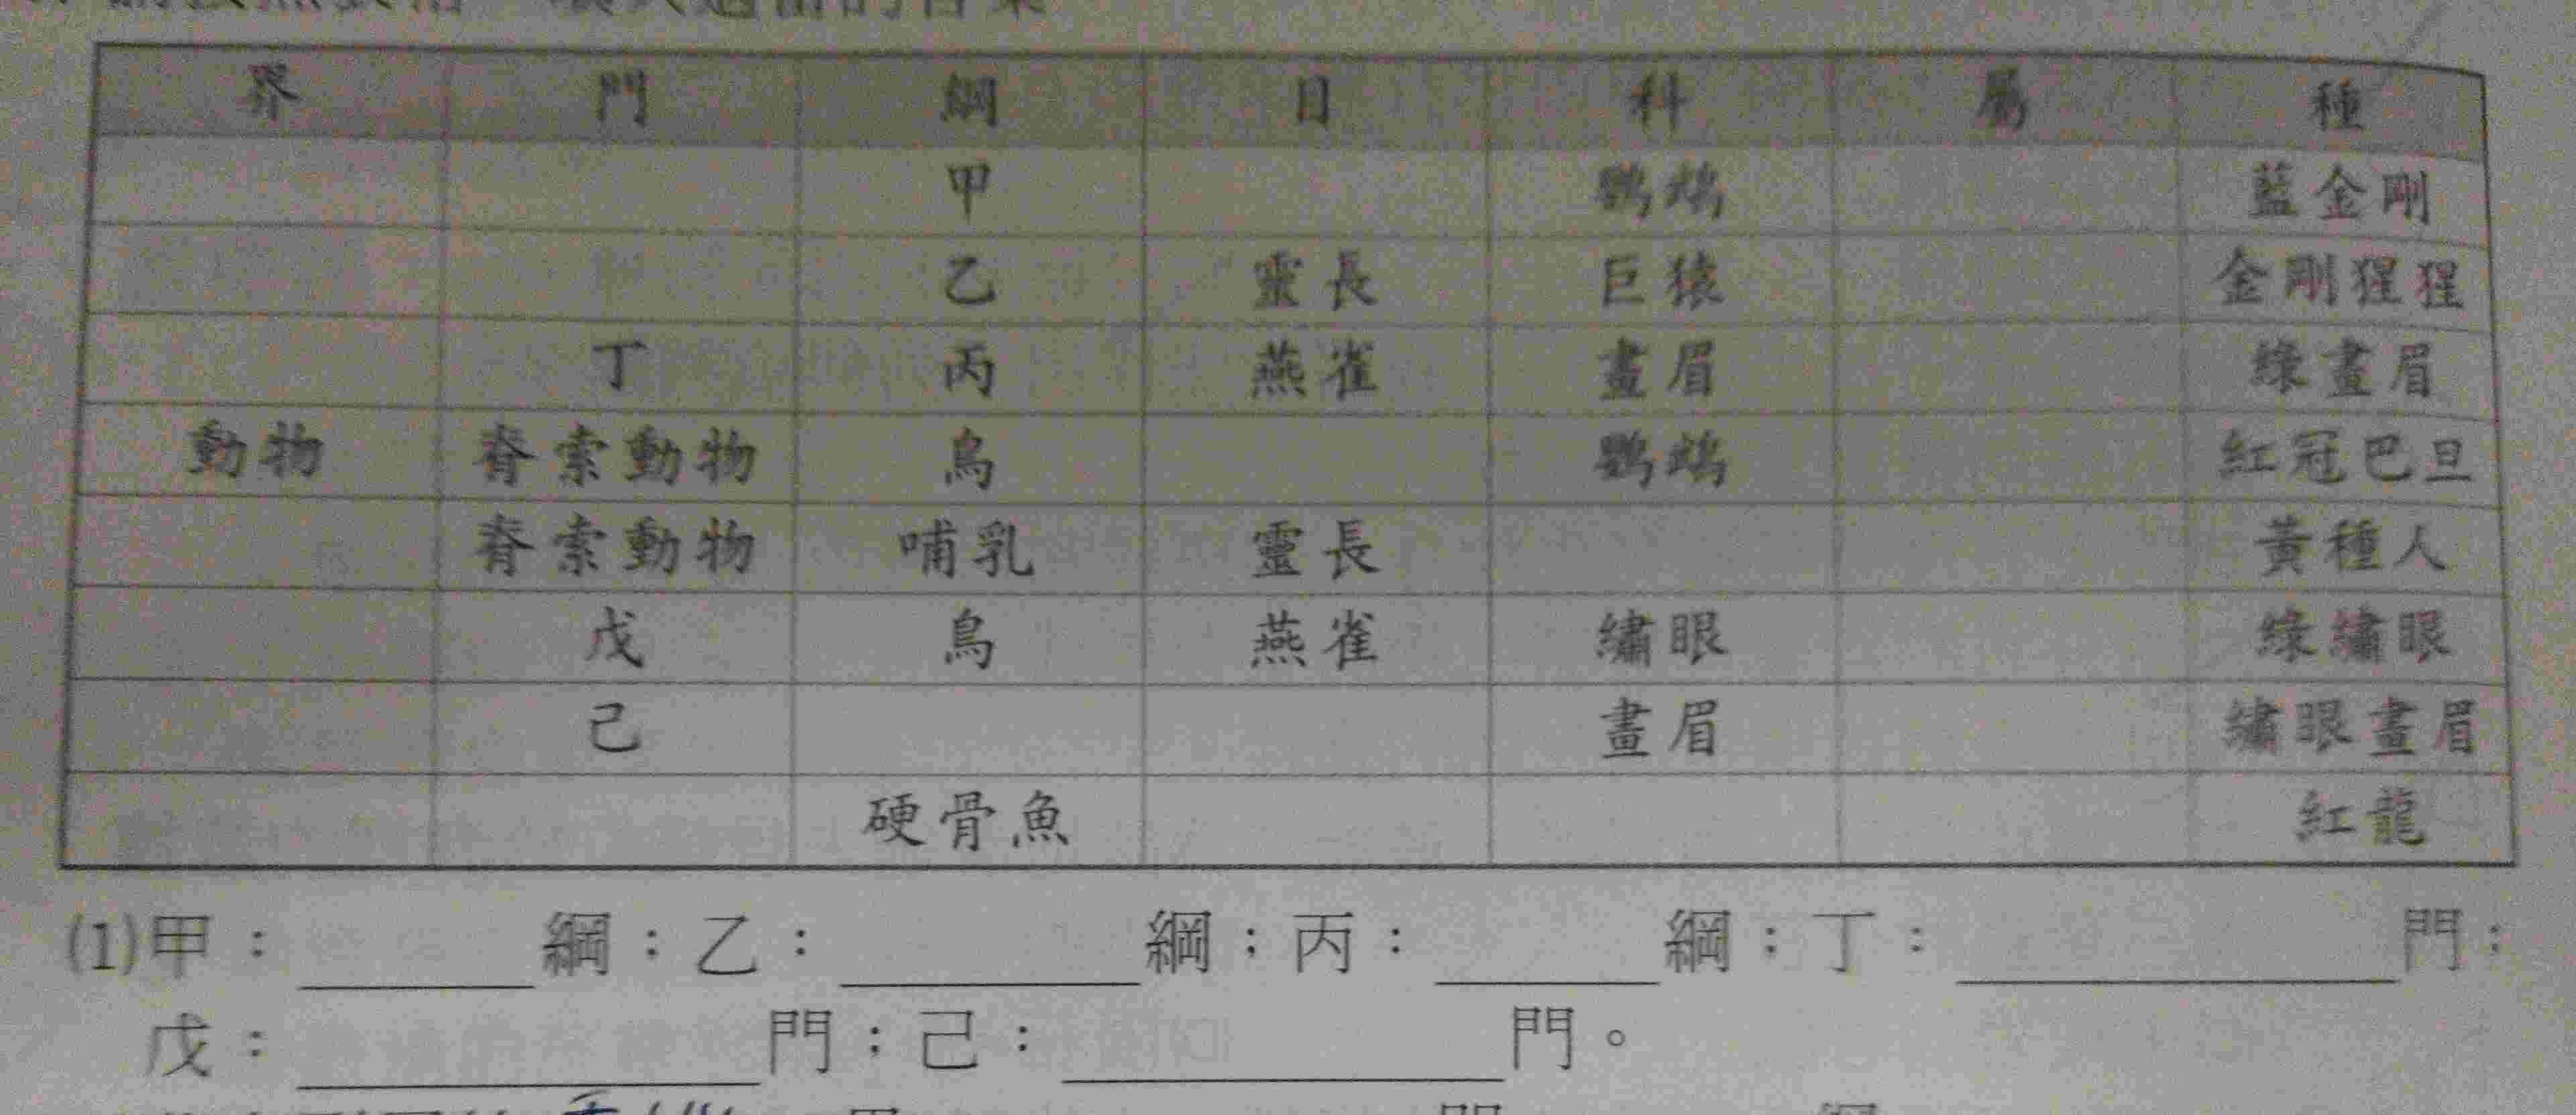 界 門 綱 目 科 屬 種
甲 鸚鵡 藍金剛
乙 靈長 巨猿 金剛猩猩
丁 丙 燕雀 畫眉 綠畫眉
動物 脊索動物 鳥 鸚鵡 紅冠巴旦
脊索動物 哺乳 靈長 黃種人
戊 鳥 燕雀 繡眼 綠繡眼
己 畫眉 繡眼畫眉
硬骨魚 紅龍
(1)甲：＿＿綱；乙：＿＿＿綱；丙：＿＿綱；丁：＿＿＿＿門；
戊：＿＿＿＿門；己：＿＿＿＿門。